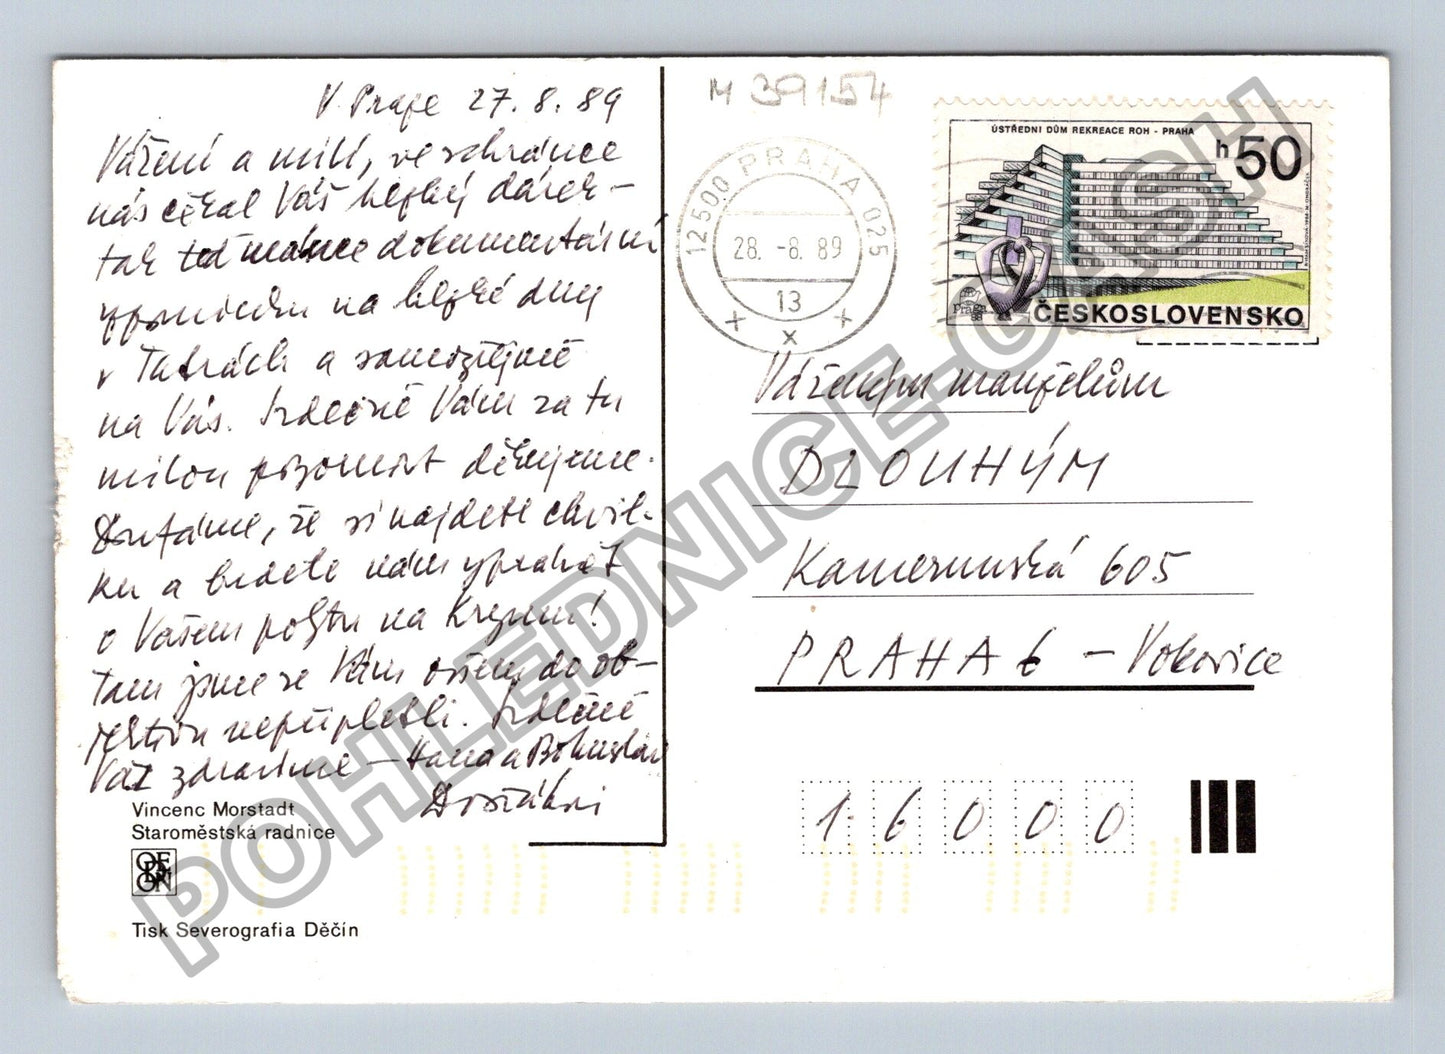 V Praze 27. 8. 89
Vážení a milí, ve schránce
nás čekal Váš hezký dárek –
tak teď máme dokumentární
vzpomínku na hezké dny
v Tatrách a samozřejmě
na Vás. Srdečně Vám za tu
milou pozornost děkujeme.
Doufáme, že si najdete chvil-
ku a budete nám vyprávět
o Vašem pobytu na Krymu!
Tam jsme se Vám ovšem do ob-
jektivu nepřipletli. Srdečně
Vás zdravíme – Hana a Bohuslav
Dostálovi
Vincenc Morstadt
Staroměstská radnice
ODEON
Tisk Severografia Děčín
M 39154
12500 PRAHA 025
28. -8. 89
13
x
ÚSTŘEDNÍ DŮM REKREACE ROH - PRAHA
h 50
Praga 88
ČESKOSLOVENSKO
Váženým manželům
DLOUHÝM
Kamerunská 605
PRAHA 6 – Vokovice
16000
POHLEDNICE-CASH